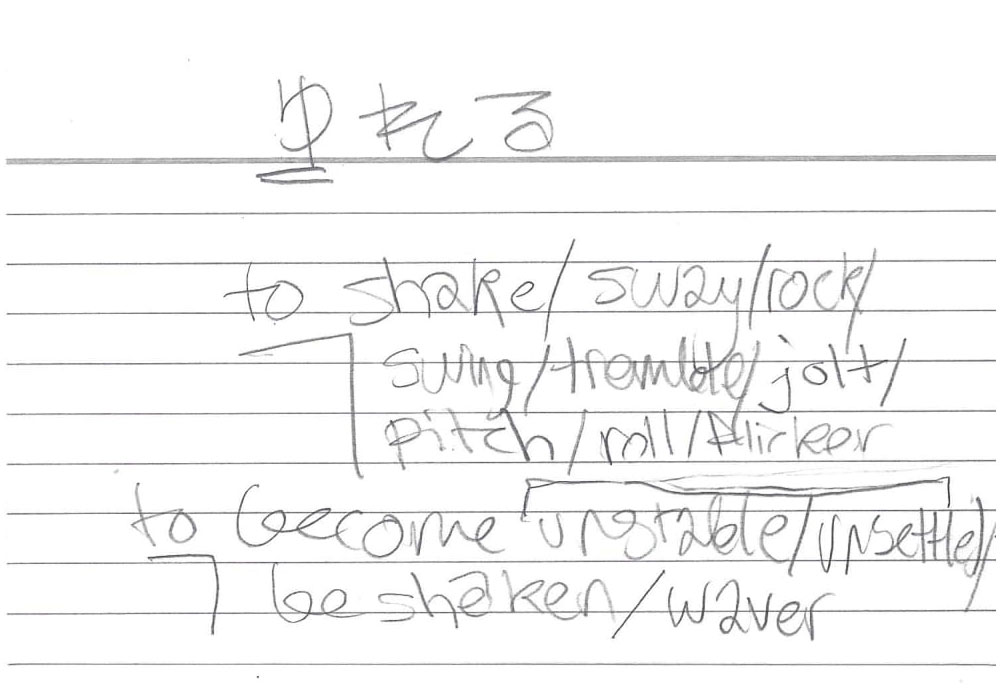 ゆれる
to shake/sway/rock/
swing/tremble/jolt/
pitch/roll/flicker
to become unstable/unsettled/
be shaken/waver